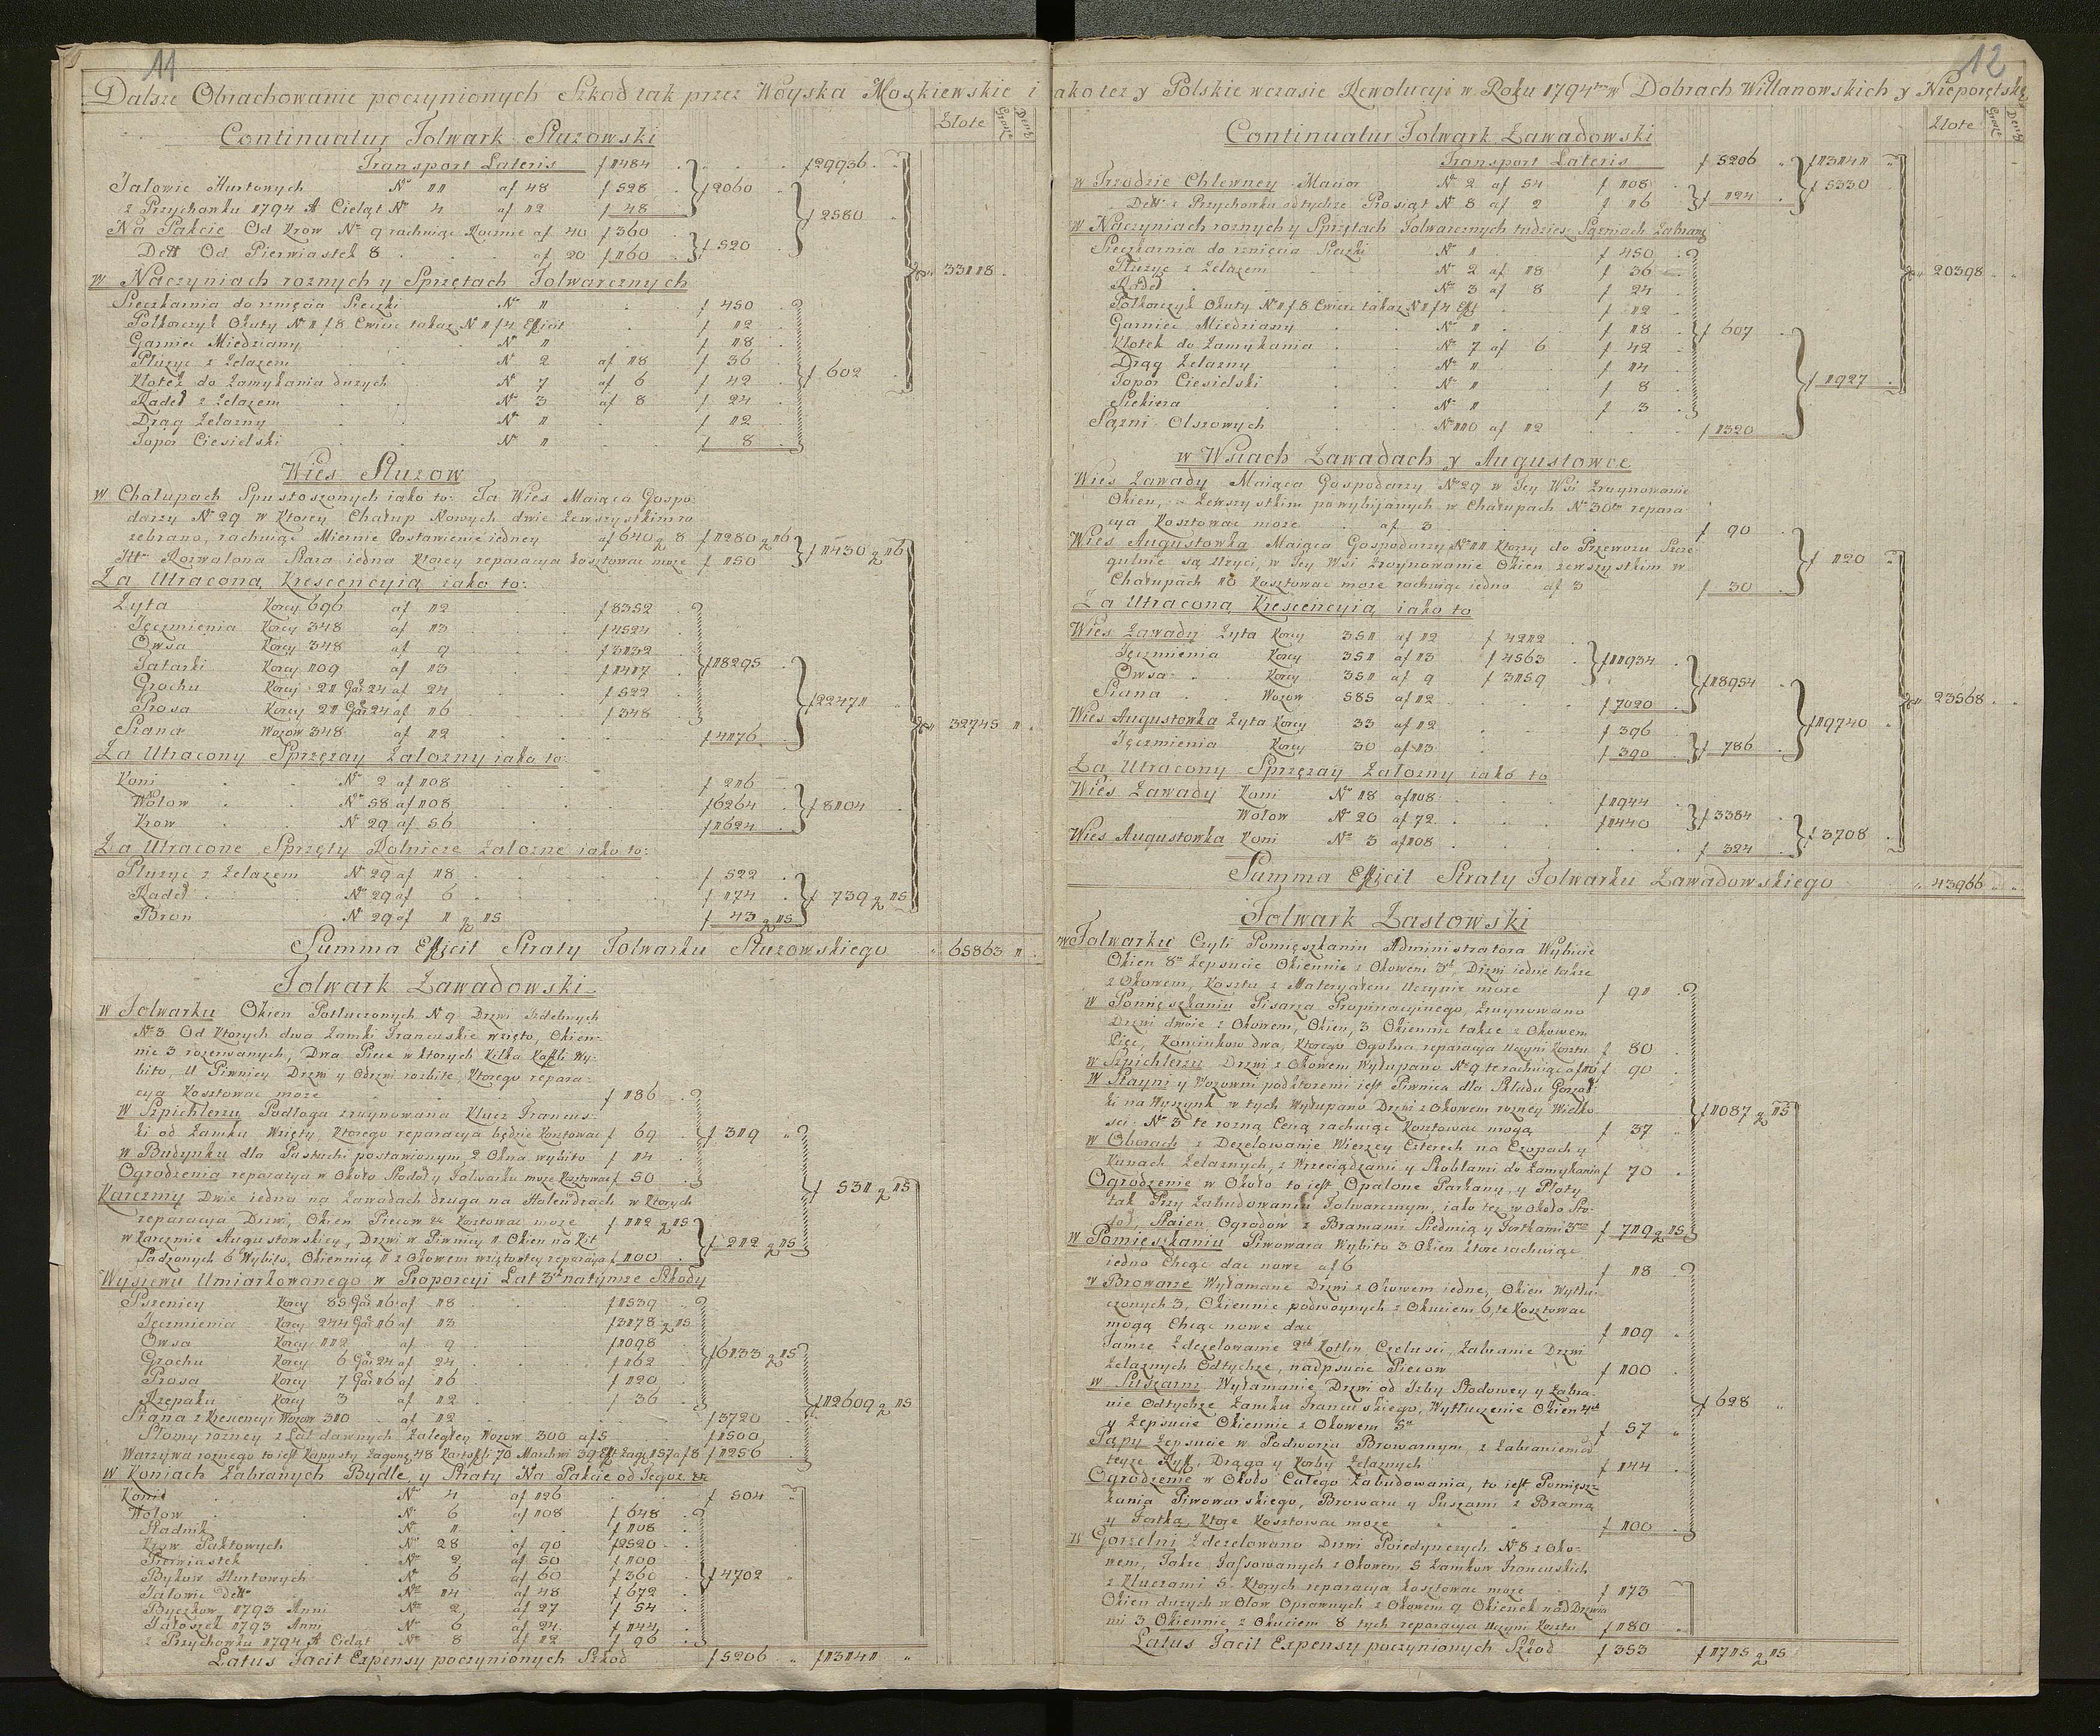 11
Dalsze Obrachowanie poczynionych Szkod tak przez Woyska Moskiewskie i
Złote Grosze Den:
Continuatur Folwark Służowski
Transport Lateris f 1484 f 29936
Jałowic Hurtowych Nº 11 af 48 f 528 f 2060
z Przychowku 1794 A Cieląt Nº 4 af 12 f 48 f 2580
Na Pakcie Od Krów Nº 9 rachuiąc Rocznie af 40 f 360
Dett Od Pierwiastek 8 af 20 f 160 f 520
w Naczyniach roznych y Sprzętach Folwarcznych 33118
Sieczkarnia do rznięcia Sieczki Nº 1 f 450
Półkorczyk Okuty Nº 1 f 8 Cwierc takaz N 1 f 4 Efficit f 12
Garniec Miedziany Nº 1 f 18
Płużyc z Żelazem Nº 2 af 18 f 36
Kłotek do Zamykania dużych Nº 7 af 6 f 42 f 602
Radeł z Żelazem Nº 3 af 8 f 24
Drąg Żelazny Nº 1 f 12
Topor Ciesielski Nº 1 f 8
Wies Służow
w Chałupach Spustoszonych iako to: Ta Wies Maiąca Gospo:
darzy Nº 29 w Ktorey Chałup Nowych dwie zewszystkim ro
zebrano, rachuiąc Miernie Postawienie iedney af 640 g 8 f 1280 g 16
Rozwalona Stara iedna Ktorey reparacya kosztowac moze f 150 f 1430 g 16
Za Utraconą Krescencyią iako to:
Żyta Korcy 696 af 12 f 8352
Jęczmienia Korcy 348 af 13 f 4524
Owsa Korcy 348 af 9 f 3132
Tatarki Korcy 109 af 13 f 1417 f 18295
Grochu Korcy 21 Gar 24 af 24 f 522
Prosa Korcy 21 Gar 24 af 16 f 348 f 22471
Siana Wozow 348 af 12 f 4176 32745 11
Za Utracony Sprzężay Załozny iako to:
Koni Nº 2 af 108 f 216
Wołow Nº 58 af 108 f 6264 f 8104
Krow Nº 29 af 56 f 1624
Za Utracone Sprzęty Rolnicze Załozne iako to:
Płużyc z Żelazem Nº 29 af 18 f 522
Radeł Nº 29 af 6 f 174 f 739 g 15
Bron Nº 29 af 1 g 15 f 43 g 15
Summa Efficit Straty Folwarku Służowskiego 65863 11
Folwark Zawadowski
w Folwarku Okien Potłuczonych Nº 9 Drzwi Izdebnych
Nº 3 Od Ktorych dwa Zamki Francuskie wzięto, Okien:
nic 3 rozerwanych, Dwa Piece w ktorych Kilka Kafli Wy:
bito, U Piwnicy Drzwi y Odrzwi rozbite, Ktorego repara:
cya Kosztowac moze f 186
w Szpichlerzu Podłoga zruynowana Klucz Francus:
ki od Zamku Wzięty, Ktorego reparacya będzie Kosztowac f 69 f 319
w Budynku dla Pastucha postawionym 2 Okna wybito f 14
Ogrodzenia reparacya w Około Stodoły Folwarku moze Kosztowac f 50
Karczmy Dwie iedna na Zawadach druga na Holendrach w Ktorych f 531 g 15
reparacya Drzwi, Okien Piecow 2ch Kosztowac moze f 112 g 15
w Karczmie Augustowskiey, Drzwi w Piwnicy 1 Okien na Kit f 212 g 15
Sadzonych 6 Wybito, Okiennicę 1 z Okowem wzięto tey reparacya f 100
Wysiewu Umiarkowanego w Proporcyi Lat 3ch na tymze Szkody
Pszenicy Korcy 85 Gar 16 af 18 f 1539
Jęczmienia Korcy 244 Gar 16 af 13 f 3178 g 15
Owsa Korcy 112 af 9 f 1098
Grochu Korcy 6 Gar 24 af 24 f 162 f 6133 g 15
Prosa Korcy 7 Gar 16 af 16 f 120
Rzepaku Korcy 3 af 12 f 36 f 12609 g 15
Siana z Krescencyi Wozow 310 af 12 f 3720
Słomy rozney z Lat dawnych Zaległey Wozow 300 af 5 f 1500
Warzywa roznego to iest Kapusty Zagonę 48 Kartofli 70 Marchwi 39 Eff. Zag. 157 af 8 f 1256
w Koniach Zabranych Bydle, y Straty Na Pakcie od Tegoz
Konie Nº 4 af 126 f 504
Wołow Nº 6 af 108 f 648
Stadnik Nº 1 f 108
Krow Paktowych Nº 28 af 90 f 2520
Pierwiastek Nº 2 af 50 f 100
Bykow Hurtowych Nº 6 af 60 f 360 f 4702
Jałowic Detto Nº 14 af 48 f 672
Byczkow 1793 Anni Nº 2 af 27 f 54
Jałoszek 1793 Anni Nº 6 af 24 f 144
z Przychowku 1794 A Cieląt Nº 8 af 12 f 96
Latus Facit Expensy poczynionych Szkod f 5206 f 13141
12
ako tez y Polskie wczasie Rewolucyi w Roku 1794tym w Dobrach Willanowskich y Nieporętskich
Złote Grosze Den:
Continuatur Folwark Zawadowski
Transport Lateris f 5206 f 13141
w Trzodzie Chlewney Macior Nº 2 af 54 f 108 f 5330
Dett z Przychowku odtychże Prosiąt Nº 8 af 2 f 16 f 124
w Naczyniach roznych y Sprzętach Folwarcznych tudziesz Sązniach Zabrany
Sieczkarnia do rznięcia Sieczki Nº 1 f 450
Płużyc z Żelazem Nº 2 af 18 f 36 20398
Radeł Nº 3 af 8 f 24
Półkorczyk Okuty Nº 1 f 8 Cwierc takaz N 1 f 4 Eff f 12
Garniec Miedziany Nº 1 f 18 f 607
Kłotek do Zamykania Nº 7 af 6 f 42
Drąg Żelazny Nº 1 f 14
Topor Ciesielski Nº 1 f 8 f 1927
Siekiera Nº 1 f 3
Sązni Olszowych Nº 110 af 12 f 1320
w Wsiach Zawadach y Augustowce
Wies Zawady Maiąca Gospodarzy Nº 29 w Tey Wsi Zruynowanie
Okien, zewszystkim powybijanych w Chałupach Nº 30tu repara
cya Kosztowac moze af 3 f 90
Wies Augustowka Maiąca Gospodarzy Nº 11 Ktorzy do Przewozu Szcze
gulnie są Uzyci, w Tey Wsi Zruynowanie Okien zewszystkim w f 120
Chałupach 10 Kosztowac moze rachuiąc iedno af 3 f 30
Za Utraconą Krescencyią iako to
Wies Zawady Żyta Korcy 351 af 12 f 4212
Jęczmienia Korcy 351 af 13 f 4563 f 11934
Owsa Korcy 351 af 9 f 3159 f 18954
Siana Wozow 585 af 12 f 7020 23568
Wies Augustowka Żyta Korcy 33 af 12 f 396 f 19740
Jęczmienia Korcy 30 af 13 f 390 f 786
Za Utracony Sprzężay Załozny iako to
Wies Zawady Koni Nº 18 af 108 f 1944
Wołow Nº 20 af 72 f 1440 f 3384
Wies Augustowka Koni Nº 3 af 108 f 324 f 3708
Summa Efficit Straty Folwarku Zawadowskiego 43966
Folwark Zastowski
w Folwarku Czyli Pomięszkaniu Administratora Wybicie
Okien 8m Zepsucie Okiennic z Okowem 3ch, Drzwi iedne takze
z Okowem, Kosztu z Materyałem Uczynic moze f 91
w Pomięszkaniu Pisarza Propinacyinego, Zruynowano
Drzwi dwoie z Okowem, Okien, 3 Okiennic takze z Okowem
Piec, Kominkow dwa, Ktorego Ogulna reparacya Uczyni Kosztu f 80
w Szpichlerzu Drzwi z Okowem Wyłupano Nº 9 te rachuiąc af 10 f 90
w Stayni y Wozowni podktoremi iest Piwnica dla Składu Gorzał
ki na Wyszynk w tych Wyłupano Drzwi z Okowem rozney Wielko f 1087 g 15
sci Nº 3 te rozną Ceną rachuiąc Kosztowac mogą f 37
w Oborach z Dezelowanie Wierzey Czterech na Czopach y
Kunach Żelaznych, z Wrzeciądzami y Skoblami do Zamykania f 70
Ogrodzenie w Około to iest Opalone Parkany, y Płoty
tak Przy Zabudowaniu Folwarcznym, iako tez w Około Sto:
doł, Staien, Ogrodow z Bramami Siedmią y Fortkami 3ma f 719 g 15
w Pomięszkaniu Piwowara Wybito 3 Okien ktore rachuiąc
iedno chcąc dac nowe af 6 f 18
w Browarze Wyłamane Drzwi z Okowem iedne, Okien Wytłu:
czonych 3, Okiennic podwoynych z Okuciem 6, te Kosztowac
mogą Chcąc nowe dac f 109
Tamze Zdezelowanie 2ch Kotlin Czelusci, Zabranie Drzwi
Żelaznych Odtychze, nadpsucie Piecow f 100
w Suszarni Wyłamanie Drzwi od Izby Słodowey y Zabra: f 628
nie Odtychze Zamku Francuskiego, Wytłuczenie Okien 4ch
y Zepsucie Okiennic z Okowem 5u f 57
Pąpy Zepsucie w Podworzu Browarnym, z Zabraniem od
teyze Ryff, Drąga y Korby Żelaznych f 144
Ogrodzenie w Około Całego Zabudowania, to iest Pomięsz:
kania Piwowarskiego, Browaru y Suszarni z Bramą
y Fortką, Ktore Kosztowac moze f 100
w Gorzelni Zdezelowano Drzwi Poiedynczych Nº 8 z Oko:
wem, Takze Fassowanych z Okowem 5 Zamkow Francuskich
z Kluczami 5 Ktorych reparacya kosztowac moze f 173
Okien duzych w Ołow Oprawnych z Okowem 9 Okienek nad Drzwia
mi 3 Okiennic z Okuciem 8 tych reparacya Uczyni Kosztu f 180
Latus Facit Expensy poczynionych Szkod f 353 f 1715 g 15